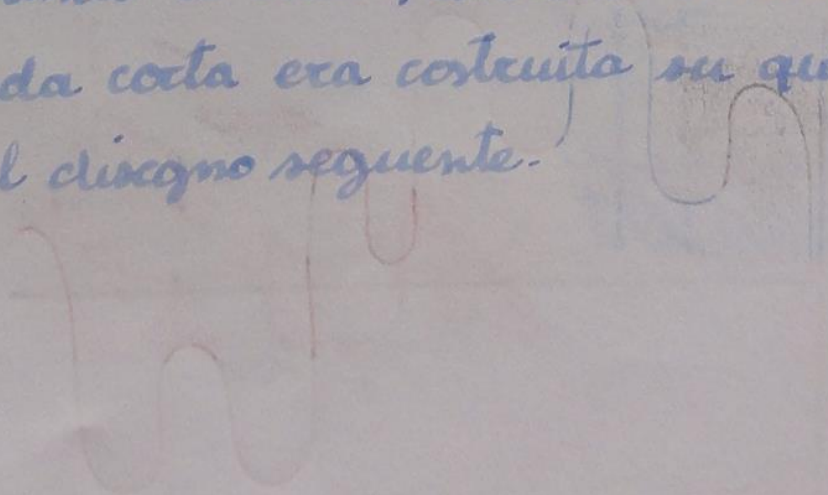 da corta era costruita su qu
l disegno seguente.